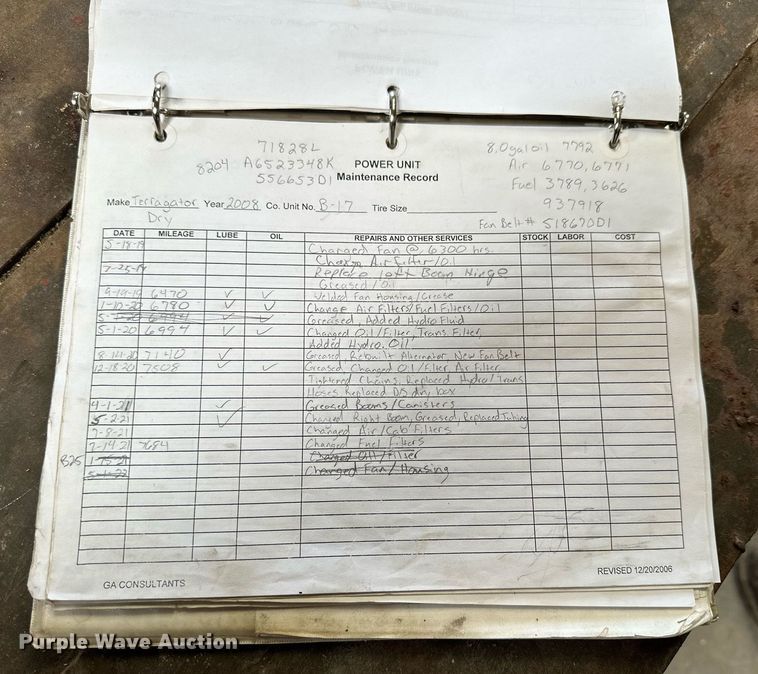 71828L
8204 A6523348K
556653D1
POWER UNIT
Maintenance Record
8.0gal oil 7792
Air 6770, 6771
Fuel 3789, 3626
937918
Fan Belt # 518670D1
Make Terragator Year 2008 Co. Unit No. B-17 Tire Size
Dry
DATE MILEAGE LUBE OIL REPAIRS AND OTHER SERVICES STOCK LABOR COST
5-18-19 Changed Fan @ 6300 hrs.
Air Filter/Oil
7-25-19 Replace left Boom Hinge
Greased/Oil
9-19-19 6470 ✓ ✓ Welded Fan Housing/Grease
1-10-20 6780 ✓ ✓ Change Air Filters/Fuel Filters/Oil
6994 ✓ ✓ Greased, Added Hydro Fluid
5-1-20 6994 ✓ ✓ Changed Oil/Filter, Trans. Filter,
Added Hydro. Oil
8-14-20 7140 ✓ Greased, Rebuilt Alternator, New Fan Belt
12-18-20 7508 ✓ ✓ Greased, Changed Oil/Filter Air Filter
Tightened Chains, Replaced Hydro/Trans
Hoses, Replaced D/S dry box
4-1-21 ✓ Greased Booms/Canisters
5-2-21 ✓ Changed Right Boom, Greased, Replaced Tubing
7-8-21 Changed Air/Cab Filters
7-14-21 7684 Changed Fuel Filters
B25 Changed Oil/Filter
Changed Fan/Housing
GA CONSULTANTS
REVISED 12/20/2006
Purple Wave Auction